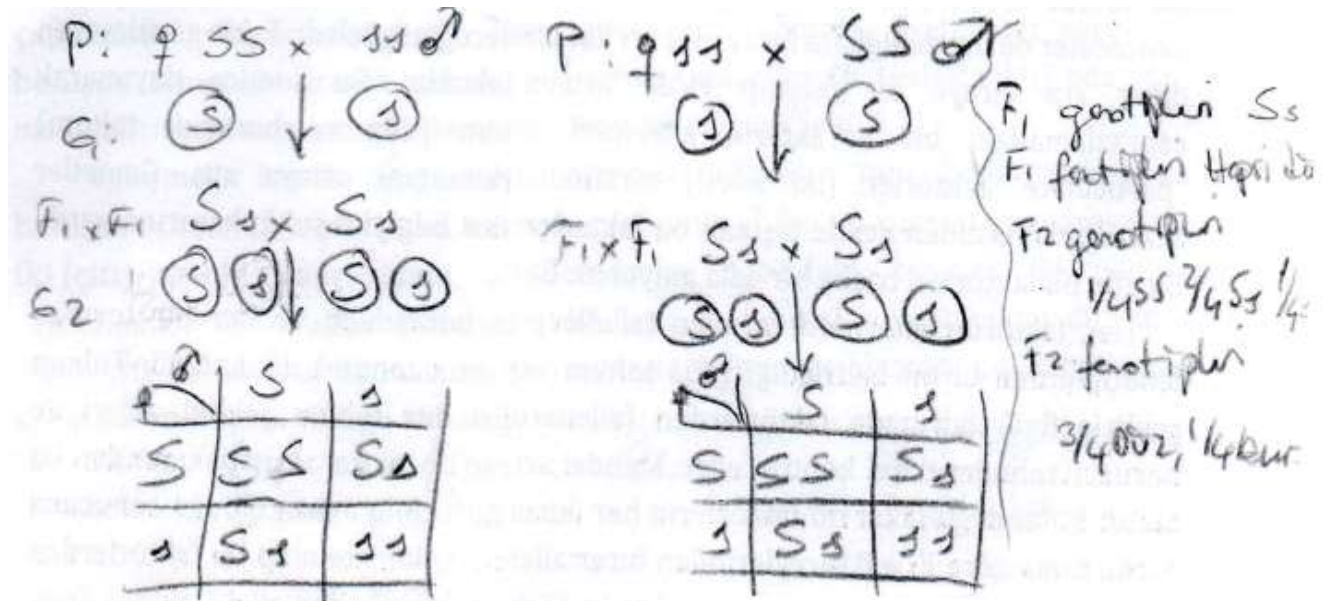 P: ♀ SS x ss ♂
G: S s
F1 x F1 Ss x Ss
G2 S s S s
♂ S s
♀
S SS Ss
s Ss ss
P: ♀ ss x SS ♂
s S
F1 x F1 Ss x Ss
S s S s
♂ S s
♀
S SS Ss
s Ss ss
F1 genotipleri Ss
F1 fenotipleri Hepsi
F2 genotipleri
1/4 SS 2/4 Ss 1/4
F2 fenotipleri
3/4 DÜZ, 1/4